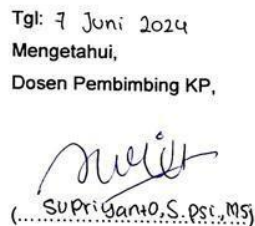 Tgl: 7 Juni 2024
Mengetahui,
Dosen Pembimbing KP,
(Supriyanto, S.Psi., MSi)